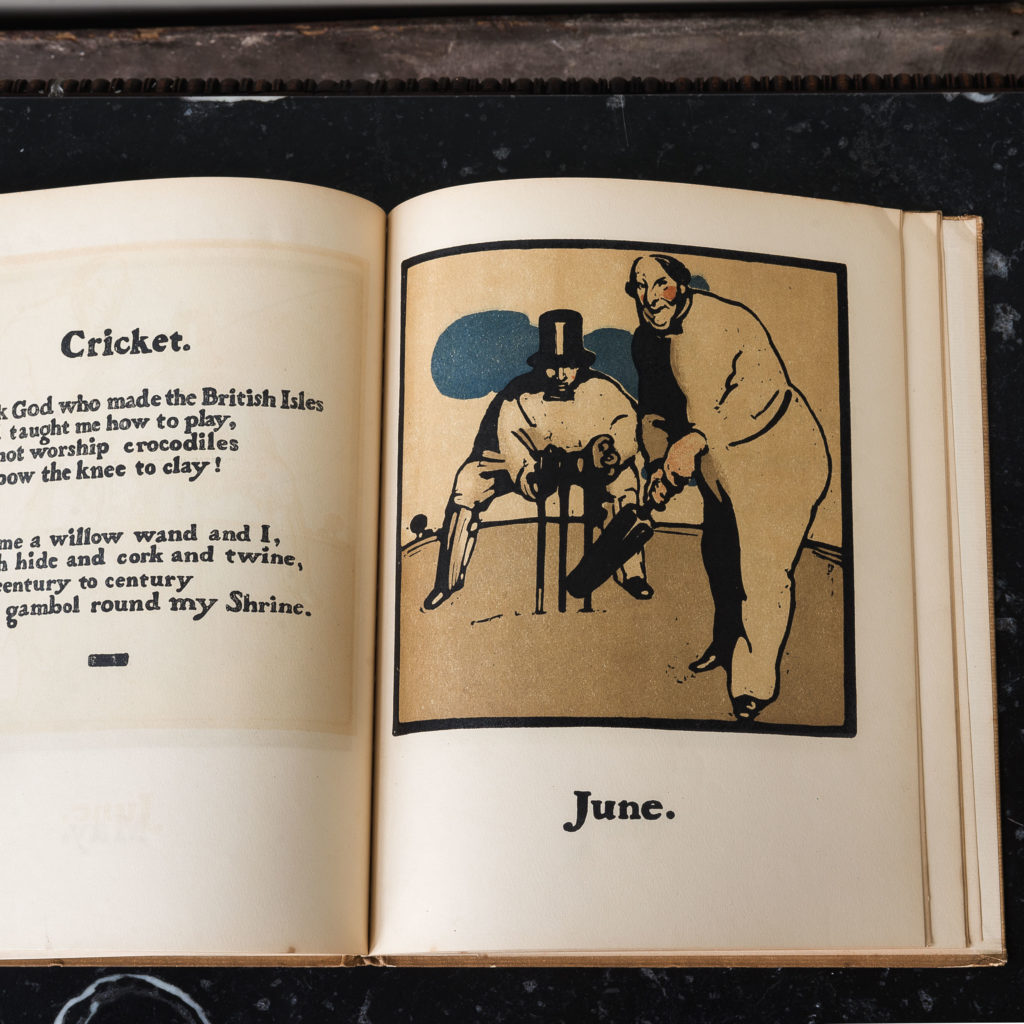 Cricket.
God who made the British Isles
taught me how to play,
not worship crocodiles
bow the knee to clay!
me a willow wand and I,
hide and cork and twine,
century to century
gambol round my Shrine.
June.